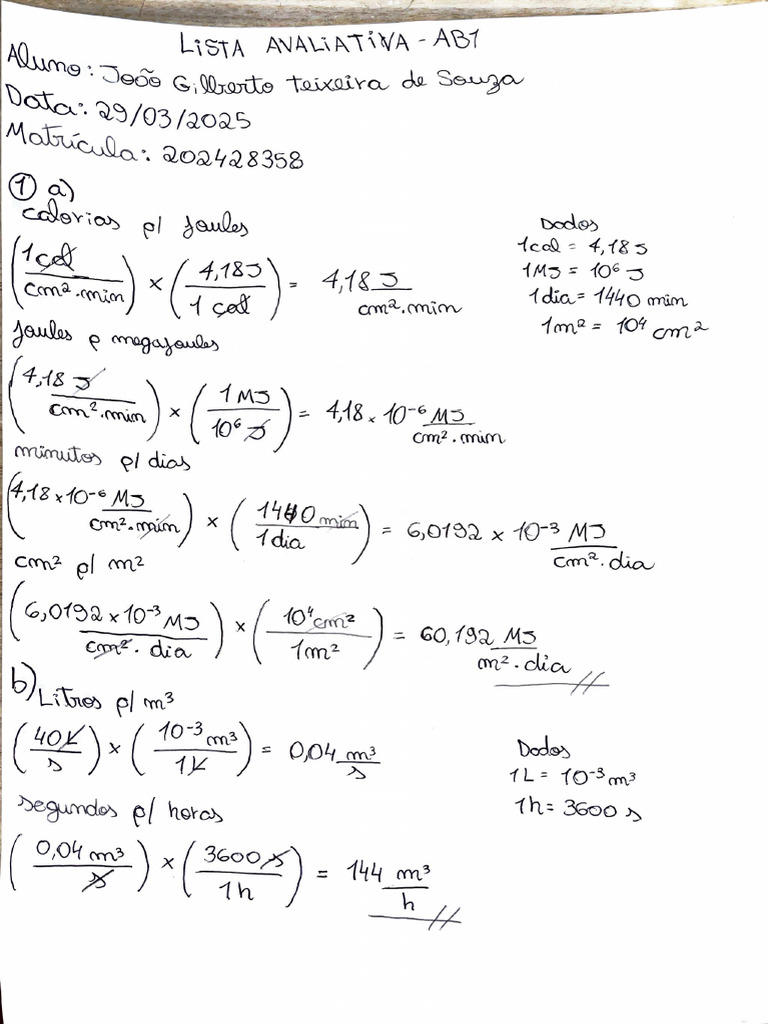 LISTA AVALIATIVA - AB1
Aluno: João Gilberto Teixeira de Souza
Data: 29/03/2025
Matrícula: 202428358
① a)
calorias p/ joules
(1 cal / cm² . min) × (4,18 J / 1 cal) = 4,18 J / cm² . min
Dados
1 cal = 4,18 J
1 MJ = 10⁶ J
1 dia = 1440 min
1 m² = 10⁴ cm²
joules p megajoules
(4,18 J / cm² . min) × (1 MJ / 10⁶ J) = 4,18 × 10⁻⁶ MJ / cm² . min
minutos p/ dias
(4,18 × 10⁻⁶ MJ / cm² . min) × (1440 min / 1 dia) = 6,0192 × 10⁻³ MJ / cm² . dia
cm² p/ m²
(6,0192 × 10⁻³ MJ / cm² . dia) × (10⁴ cm² / 1 m²) = 60,192 MJ / m² . dia
b) Litros p/ m³
(40 L / s) × (10⁻³ m³ / 1 L) = 0,04 m³ / s
Dados
1 L = 10⁻³ m³
1 h = 3600 s
segundos p/ horas
(0,04 m³ / s) × (3600 s / 1 h) = 144 m³ / h